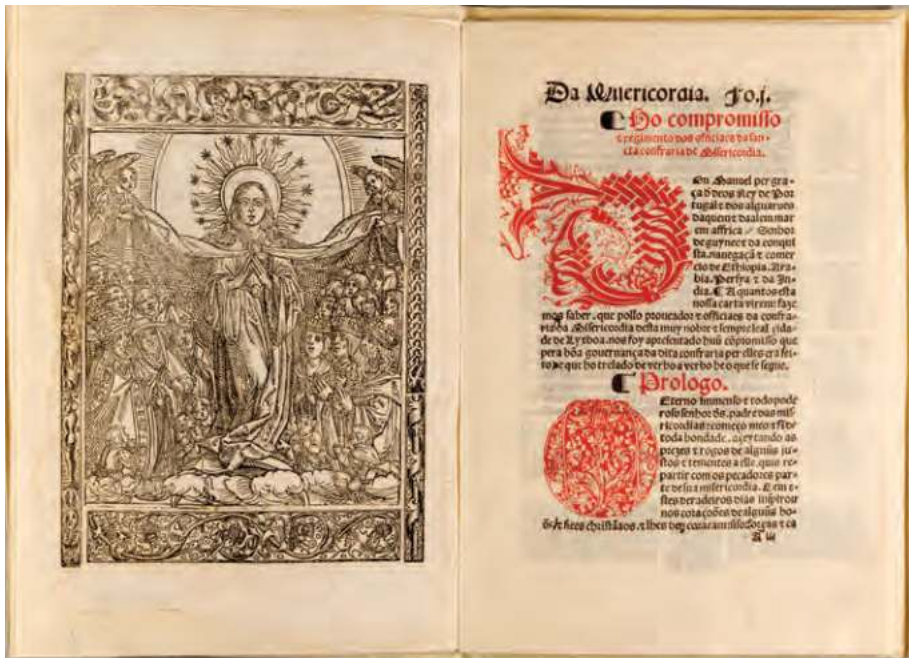 Da Misericordia. Fo.j.
¶ Do compromisso
e regimento dos officiaes da san-
cta confraria de Misericordia.
Dom Manuel per gra-
ça d̃ deos Rey de Por
tugal e dos algarues
daquem e dalem mar
em affrica / Senhor
de guynee e da conqui
sta. nauegaçã e comer
cio de Ethiopia. Ara-
bia. Persya e da In-
dia. ¶ A quantos esta
nossa carta virem: faze
mos saber. que pollo proueador e officiaes da confra-
ria da Misericordia desta muy nobre e sempre leal cida-
de de Lyxboa. nos foy apresentado huũ cõpromisso que
pera bõa gouernança da dita confraria per elles era fei-
to: de que ho trelado de verbo a verbo he o que se segue.
¶ Prologo.
Eterno immenso e todo pode
roso senhor ds̃. padre das mise
ricordias: começo meo e fi de
toda bondade. aceytando as
prezes e rogos de algũus ju-
stos e tementes a elle. quis re-
partir com os pecadores par-
te de sua misericordia. E em e-
stes derradeiros dias inspirou
nos corações de algũus bo-
õs e fiees christãaos. e lhes deu coraçam: siso: forças e ca
A iii